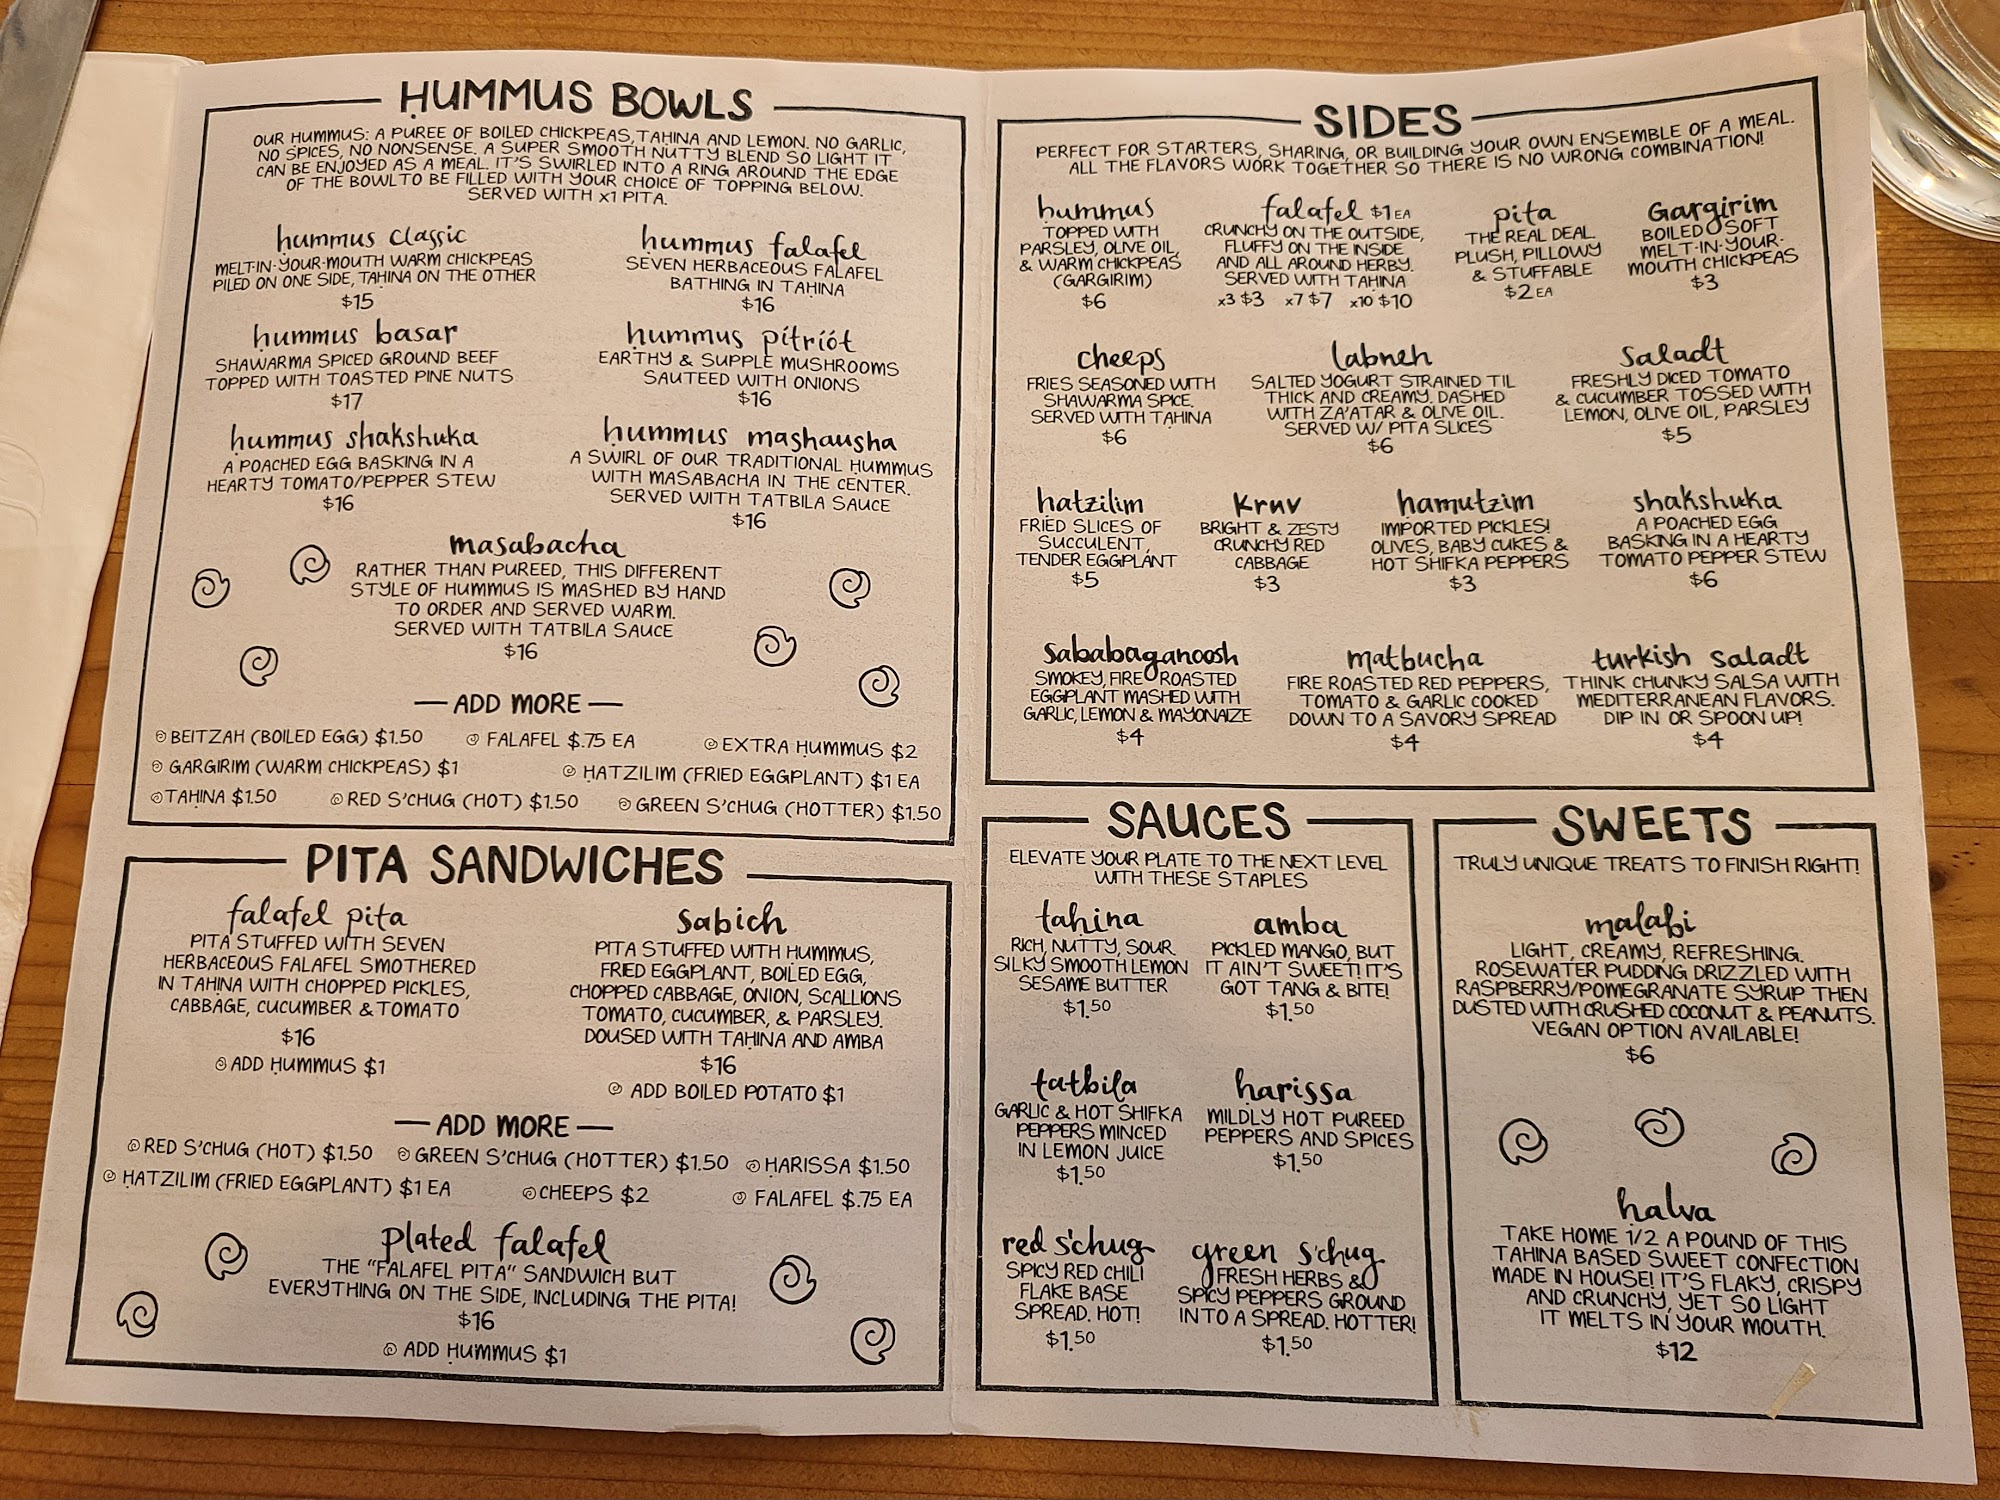 HUMMUS BOWLS
OUR HUMMUS: A PUREE OF BOILED CHICKPEAS, TAḤINA AND LEMON. NO GARLIC,
NO SPICES, NO NONSENSE. A SUPER SMOOTH NUTTY BLEND SO LIGHT IT
CAN BE ENJOYED AS A MEAL. IT'S SWIRLED INTO A RING AROUND THE EDGE
OF THE BOWL TO BE FILLED WITH YOUR CHOICE OF TOPPING BELOW.
SERVED WITH x1 PITA.
ḥummus classic
MELT-IN-YOUR-MOUTH WARM CHICKPEAS
PILED ON ONE SIDE, TAḤINA ON THE OTHER
$15
ḥummus falafel
SEVEN HERBACEOUS FALAFEL
BATHING IN TAḤINA
$16
ḥummus basar
SHAWARMA SPICED GROUND BEEF
TOPPED WITH TOASTED PINE NUTS
$17
ḥummus pitriót
EARTHY & SUPPLE MUSHROOMS
SAUTEED WITH ONIONS
$16
ḥummus shakshuka
A POACHED EGG BASKING IN A
HEARTY TOMATO/PEPPER STEW
$16
ḥummus mashausha
A SWIRL OF OUR TRADITIONAL ḤUMMUS
WITH MASABACHA IN THE CENTER.
SERVED WITH TATBILA SAUCE
$16
masabacha
RATHER THAN PUREED, THIS DIFFERENT
STYLE OF HUMMUS IS MASHED BY HAND
TO ORDER AND SERVED WARM.
SERVED WITH TATBILA SAUCE
$16
— ADD MORE —
BEITZAH (BOILED EGG) $1.50 FALAFEL $.75 EA EXTRA ḤUMMUS $2
GARGIRIM (WARM CHICKPEAS) $1 ḤATZILIM (FRIED EGGPLANT) $1 EA
TAḤINA $1.50 RED S'CHUG (HOT) $1.50 GREEN S'CHUG (HOTTER) $1.50
PITA SANDWICHES
falafel pita
PITA STUFFED WITH SEVEN
HERBACEOUS FALAFEL SMOTHERED
IN TAḤINA WITH CHOPPED PICKLES,
CABBAGE, CUCUMBER & TOMATO
$16
ADD ḤUMMUS $1
sabich
PITA STUFFED WITH ḤUMMUS,
FRIED EGGPLANT, BOILED EGG,
CHOPPED CABBAGE, ONION, SCALLIONS
TOMATO, CUCUMBER, & PARSLEY.
DOUSED WITH TAḤINA AND AMBA
$16
ADD BOILED POTATO $1
— ADD MORE —
RED S'CHUG (HOT) $1.50 GREEN S'CHUG (HOTTER) $1.50 ḤARISSA $1.50
ḤATZILIM (FRIED EGGPLANT) $1 EA CHEEPS $2 FALAFEL $.75 EA
plated falafel
THE "FALAFEL PITA" SANDWICH BUT
EVERYTHING ON THE SIDE, INCLUDING THE PITA!
$16
ADD ḤUMMUS $1
SIDES
PERFECT FOR STARTERS, SHARING, OR BUILDING YOUR OWN ENSEMBLE OF A MEAL.
ALL THE FLAVORS WORK TOGETHER SO THERE IS NO WRONG COMBINATION!
ḥummus
TOPPED WITH
PARSLEY, OLIVE OIL,
& WARM CHICKPEAS
(GARGIRIM)
$6
falafel $1 EA
CRUNCHY ON THE OUTSIDE,
FLUFFY ON THE INSIDE
AND ALL AROUND HERBY.
SERVED WITH TAHINA
x3 $3 x7 $7 x10 $10
pita
THE REAL DEAL.
PLUSH, PILLOWY
& STUFFABLE
$2 EA
Gargirim
BOILED SOFT
MELT-IN-YOUR-
MOUTH CHICKPEAS
$3
cheeps
FRIES SEASONED WITH
SHAWARMA SPICE.
SERVED WITH TAḤINA
$6
labneh
SALTED YOGURT STRAINED TIL
THICK AND CREAMY. DASHED
WITH ZA'ATAR & OLIVE OIL.
SERVED W/ PITA SLICES
$6
Saladt
FRESHLY DICED TOMATO
& CUCUMBER TOSSED WITH
LEMON, OLIVE OIL, PARSLEY
$5
ḥatzilim
FRIED SLICES OF
SUCCULENT,
TENDER EGGPLANT
$5
Kruv
BRIGHT & ZESTY
CRUNCHY RED
CABBAGE
$3
ḥamutzim
IMPORTED PICKLES!
OLIVES, BABY CUKES &
HOT SHIFKA PEPPERS
$3
shakshuka
A POACHED EGG
BASKING IN A HEARTY
TOMATO PEPPER STEW
$6
Sababaganoosh
SMOKEY, FIRE ROASTED
EGGPLANT MASHED WITH
GARLIC, LEMON & MAYONAIZE
$4
matbucha
FIRE ROASTED RED PEPPERS,
TOMATO & GARLIC COOKED
DOWN TO A SAVORY SPREAD
$4
turkish saladt
THINK CHUNKY SALSA WITH
MEDITERRANEAN FLAVORS.
DIP IN OR SPOON UP!
$4
SAUCES
ELEVATE YOUR PLATE TO THE NEXT LEVEL
WITH THESE STAPLES
taḥina
RICH, NUTTY, SOUR
SILKY SMOOTH LEMON
SESAME BUTTER
$1.50
amba
PICKLED MANGO, BUT
IT AIN'T SWEET! IT'S
GOT TANG & BITE!
$1.50
tatbila
GARLIC & HOT SHIFKA
PEPPERS MINCED
IN LEMON JUICE
$1.50
ḥarissa
MILDLY HOT PUREED
PEPPERS AND SPICES
$1.50
red s'chug
SPICY RED CHILI
FLAKE BASE
SPREAD. HOT!
$1.50
green s'chug
FRESH HERBS &
SPICY PEPPERS GROUND
INTO A SPREAD. HOTTER!
$1.50
SWEETS
TRULY UNIQUE TREATS TO FINISH RIGHT!
malabi
LIGHT, CREAMY, REFRESHING.
ROSEWATER PUDDING DRIZZLED WITH
RASPBERRY/POMEGRANATE SYRUP THEN
DUSTED WITH CRUSHED COCONUT & PEANUTS.
VEGAN OPTION AVAILABLE!
$6
ḥalva
TAKE HOME 1/2 A POUND OF THIS
TAHINA BASED SWEET CONFECTION
MADE IN HOUSE! IT'S FLAKY, CRISPY
AND CRUNCHY, YET SO LIGHT
IT MELTS IN YOUR MOUTH.
$12